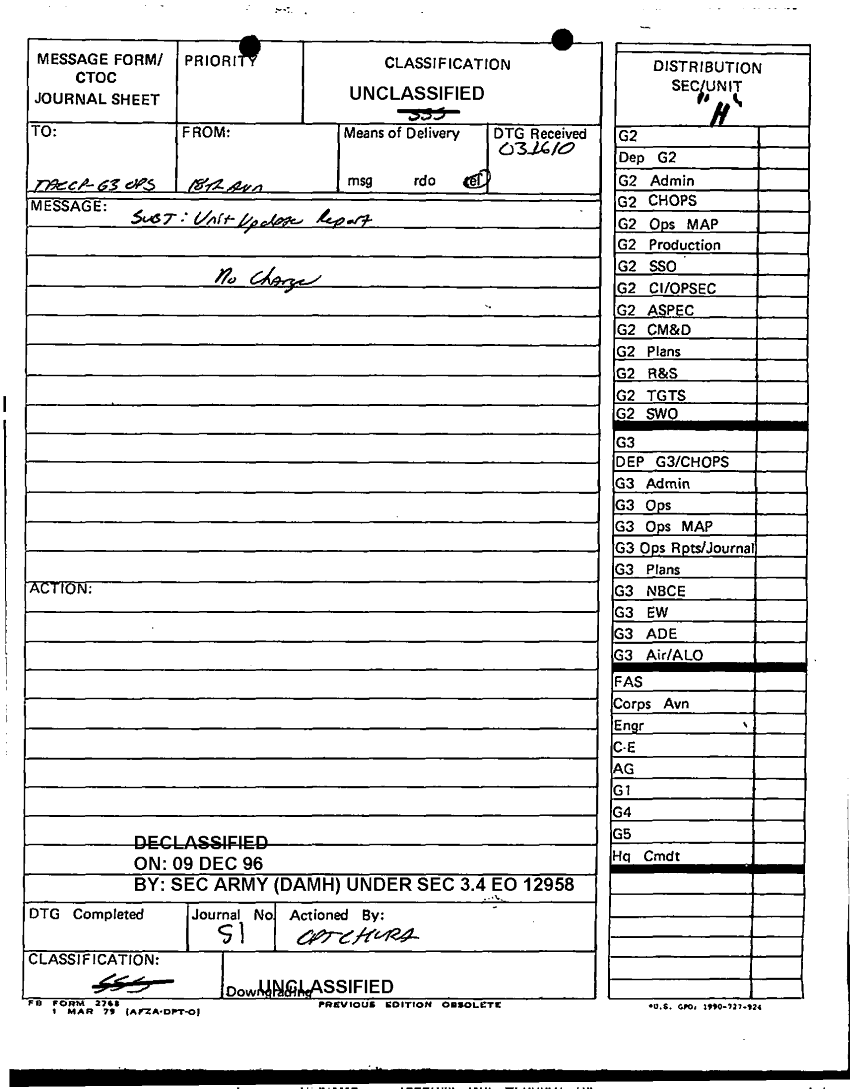 MESSAGE FORM/
CTOC
JOURNAL SHEET
PRIORITY
CLASSIFICATION
UNCLASSIFIED
SSS
DISTRIBUTION
SEC/UNIT
"H"
TO:
TACCP-G3 OPS
FROM:
18th Avn
Means of Delivery
msg rdo tel
DTG Received
031610
MESSAGE:
SUBT: Unit Update Report
No Change
ACTION:
DECLASSIFIED
ON: 09 DEC 96
BY: SEC ARMY (DAMH) UNDER SEC 3.4 EO 12958
DTG Completed
Journal No.
51
Actioned By:
CPT CHURA
CLASSIFICATION:
SSS
Downgrading
UNCLASSIFIED
FB FORM 2768
1 MAR 79 (AFZA-DPT-O)
PREVIOUS EDITION OBSOLETE
G2
Dep G2
G2 Admin
G2 CHOPS
G2 Ops MAP
G2 Production
G2 SSO
G2 CI/OPSEC
G2 ASPEC
G2 CM&D
G2 Plans
G2 R&S
G2 TGTS
G2 SWO
G3
DEP G3/CHOPS
G3 Admin
G3 Ops
G3 Ops MAP
G3 Ops Rpts/Journal
G3 Plans
G3 NBCE
G3 EW
G3 ADE
G3 Air/ALO
FAS
Corps Avn
Engr
C-E
AG
G1
G4
G5
Hq Cmdt
*U.S. GPO: 1990-727-924